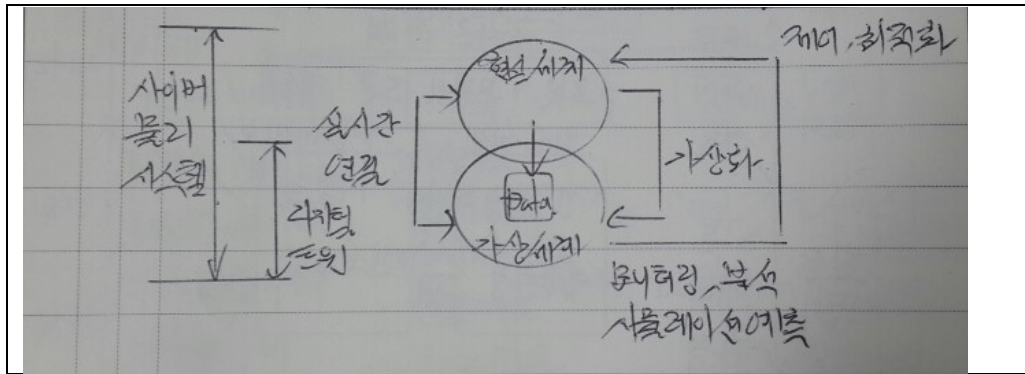 사이버
물리
시스템
실시간
연결
디지털
트윈
현실세계
Data
가상세계
가상화
제어, 최적화
모니터링, 분석
시뮬레이션 예측